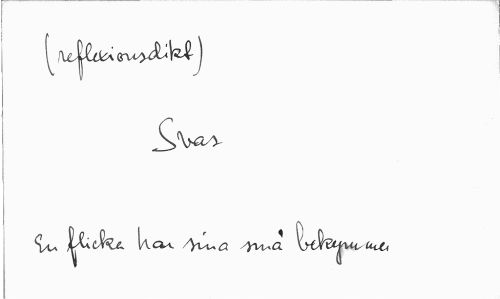 (reflexionsdikt)
Svar
En flicka har sina små bekymmer